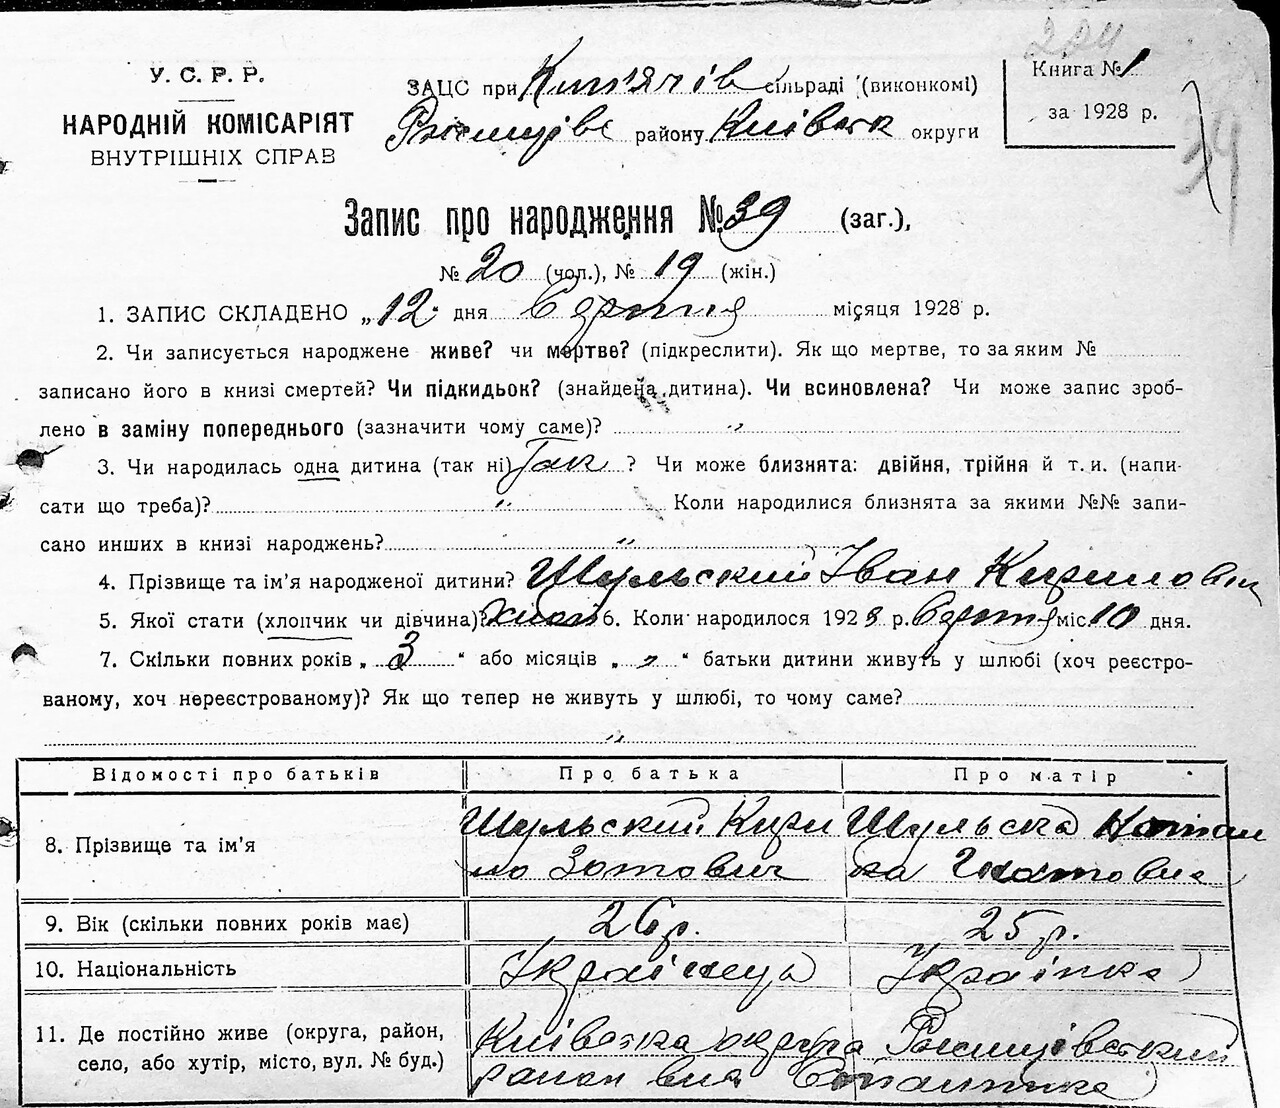 224
У. С. Р. Р.
НАРОДНІЙ КОМІСАРІЯТ
ВНУТРІШНІХ СПРАВ
ЗАЦС при сільраді (виконкомі)
району Київськ округи
Книга № 1
за 1928 р.
Запис про народження № 39 (заг.),
№ 20 (чол.), № 19 (жін.)
1. ЗАПИС СКЛАДЕНО „12“ дня Серпня місяця 1928 р.
2. Чи записується народжене живе? чи мертве? (підкреслити). Як що мертве, то за яким №
записано його в книзі смертей? Чи підкидьок? (знайдена дитина). Чи всиновлена? Чи може запис зроб-
лено в заміну попереднього (зазначити чому саме)? „
3. Чи народилась одна дитина (так ні) Так ? Чи може близнята: двійня, трійня й т. и. (напи-
сати що треба)? „ Коли народилися близнята за якими №№ запи-
сано инших в книзі народжень? „
4. Прізвище та ім’я народженої дитини? Шульский Іван Кирилович
5. Якої стати (хлопчик чи дівчина)? хлоп 6. Коли народилося 1928 р. Серпня міс. 10 дня.
7. Скільки повних років „ 3 “ або місяців „ „ “ батьки дитини живуть у шлюбі (хоч реєстро-
ваному, хоч нереєстрованому)? Як що тепер не живуть у шлюбі, то чому саме?
„
Відомості про батьків Про батька Про матір
8. Прізвище та ім’я Шульский Кири Шульска
ло Зотович
9. Вік (скільки повних років має) 26 р. 25 р.
10. Національність Українець Українка
11. Де постійно живе (округа, район, Київська округа Ржищівський
село, або хутір, місто, вул. № буд.) район